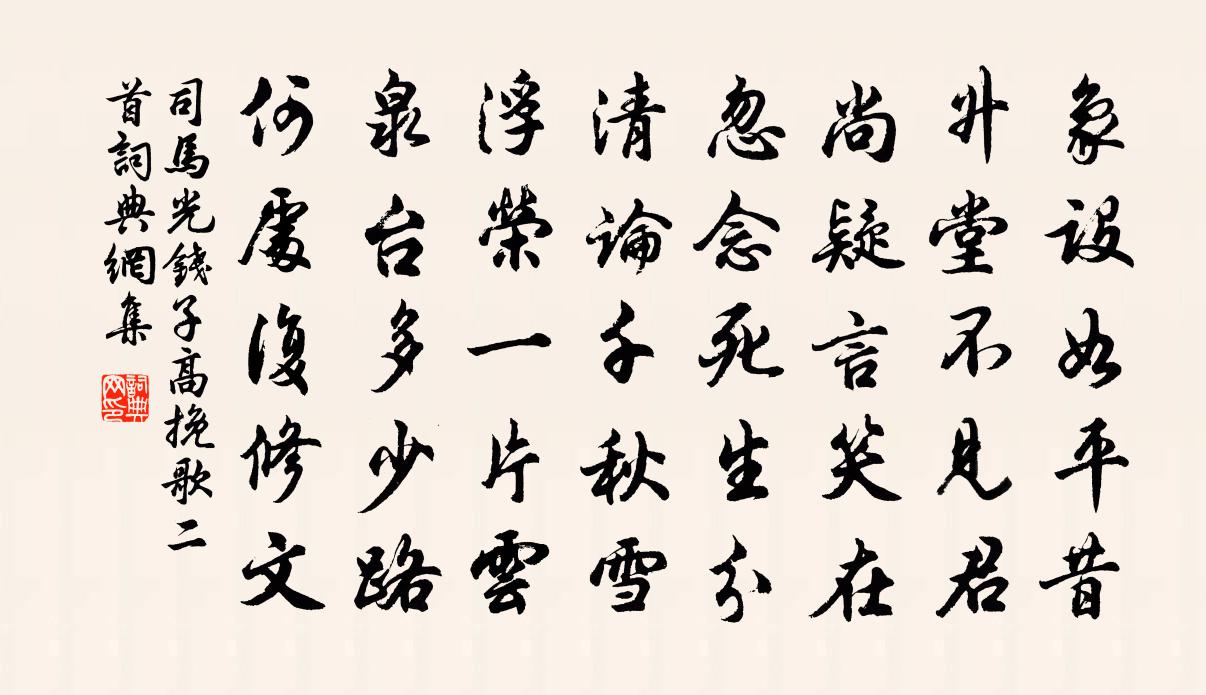 象設如平昔
升堂不見君
尚疑言笑在
忽念死生分
清論千秋雪
浮榮一片雲
泉台多少路
何處復修文
司馬光錢子高挽歌二
首詞典網集
詞典
网印